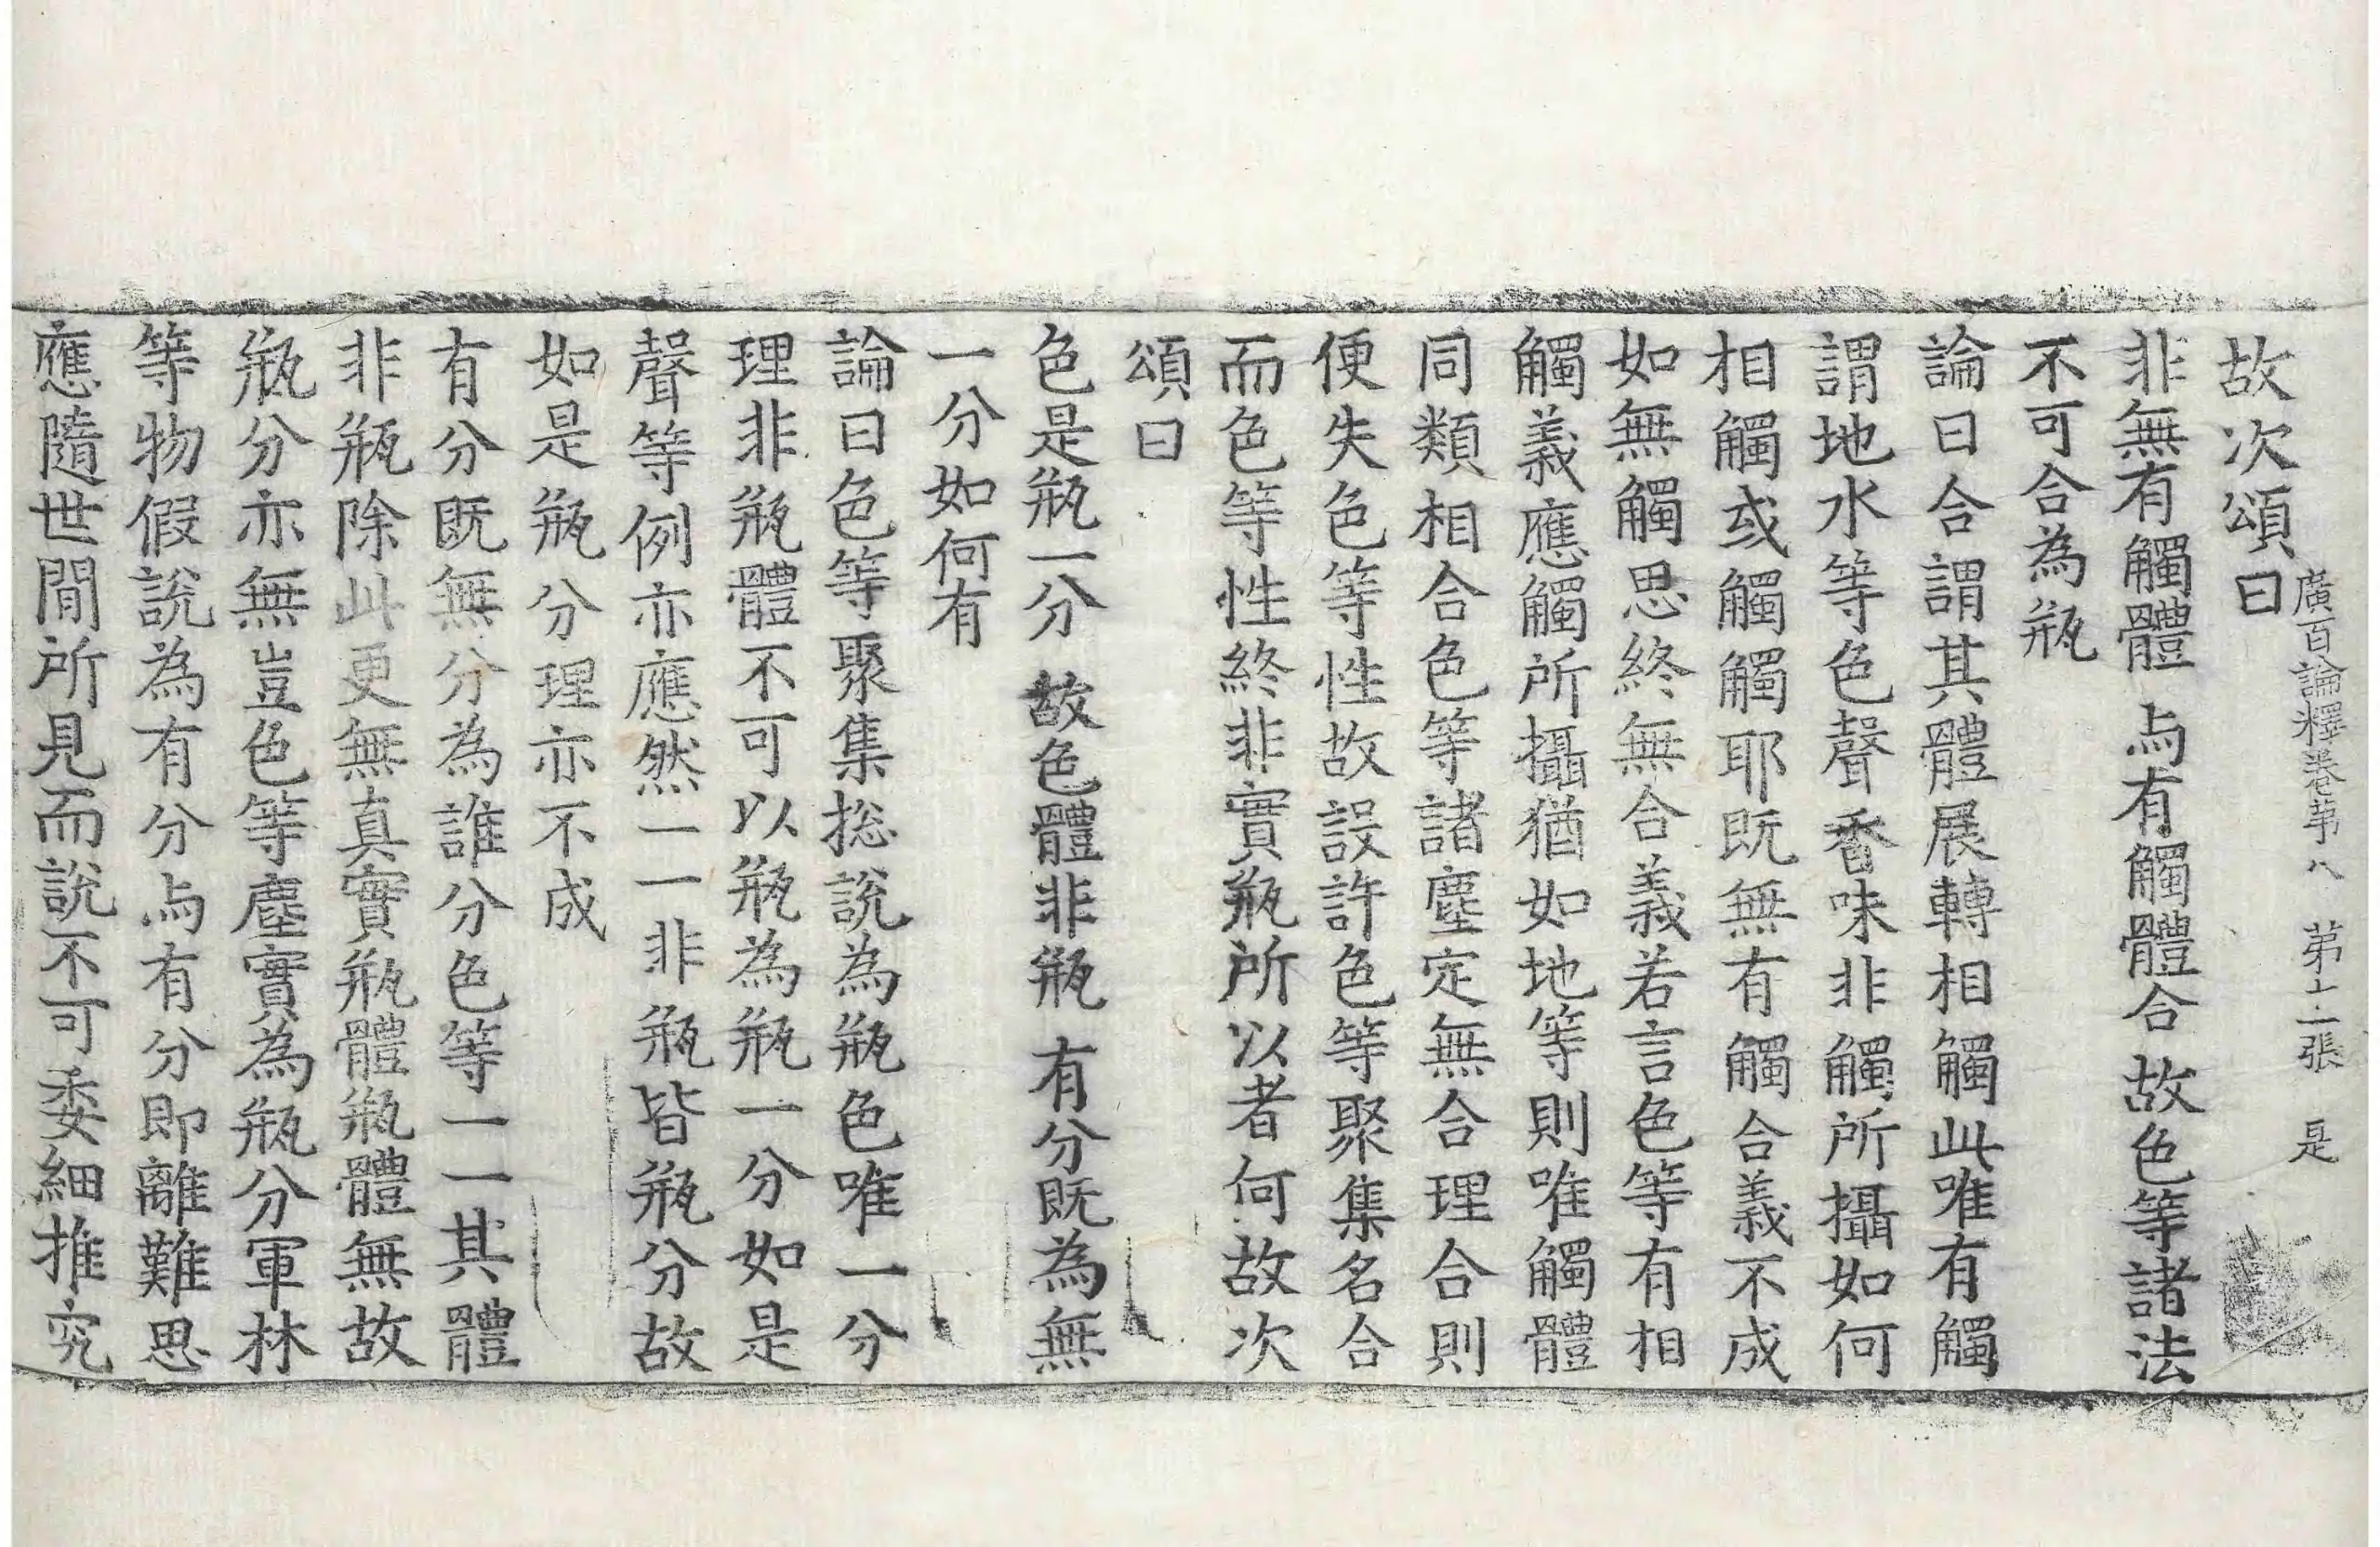 故次頌曰
廣百論釋卷苐八　第十二張　是
非無有觸體　与有觸體合　故色等諸法
不可合為瓶
論曰合謂其體展轉相觸此唯有觸
謂地水等色聲香味非觸所攝如何
相觸或觸觸耶既無有觸合義不成
如無觸思終無合義若言色等有相
觸義應觸所攝猶如地等則唯觸體
同類相合色等諸塵定無合理合則
便失色等性故設許色等聚集名合
而色等性終非實瓶所以者何故次
頌曰
色是瓶一分　故色體非瓶　有分既為無
一分如何有
論曰色等聚集捴說為瓶色唯一分
理非瓶體不可以瓶為瓶一分如是
聲等例亦應然一一非瓶皆瓶分故
如是瓶分理亦不成
有分既無分為誰分色等一一其體
非瓶除此更無真實瓶體瓶體無故
瓶分亦無豈色等塵實為瓶分軍林
等物假說為有分与有分即離難思
應隨世間所見而說不可委細推究